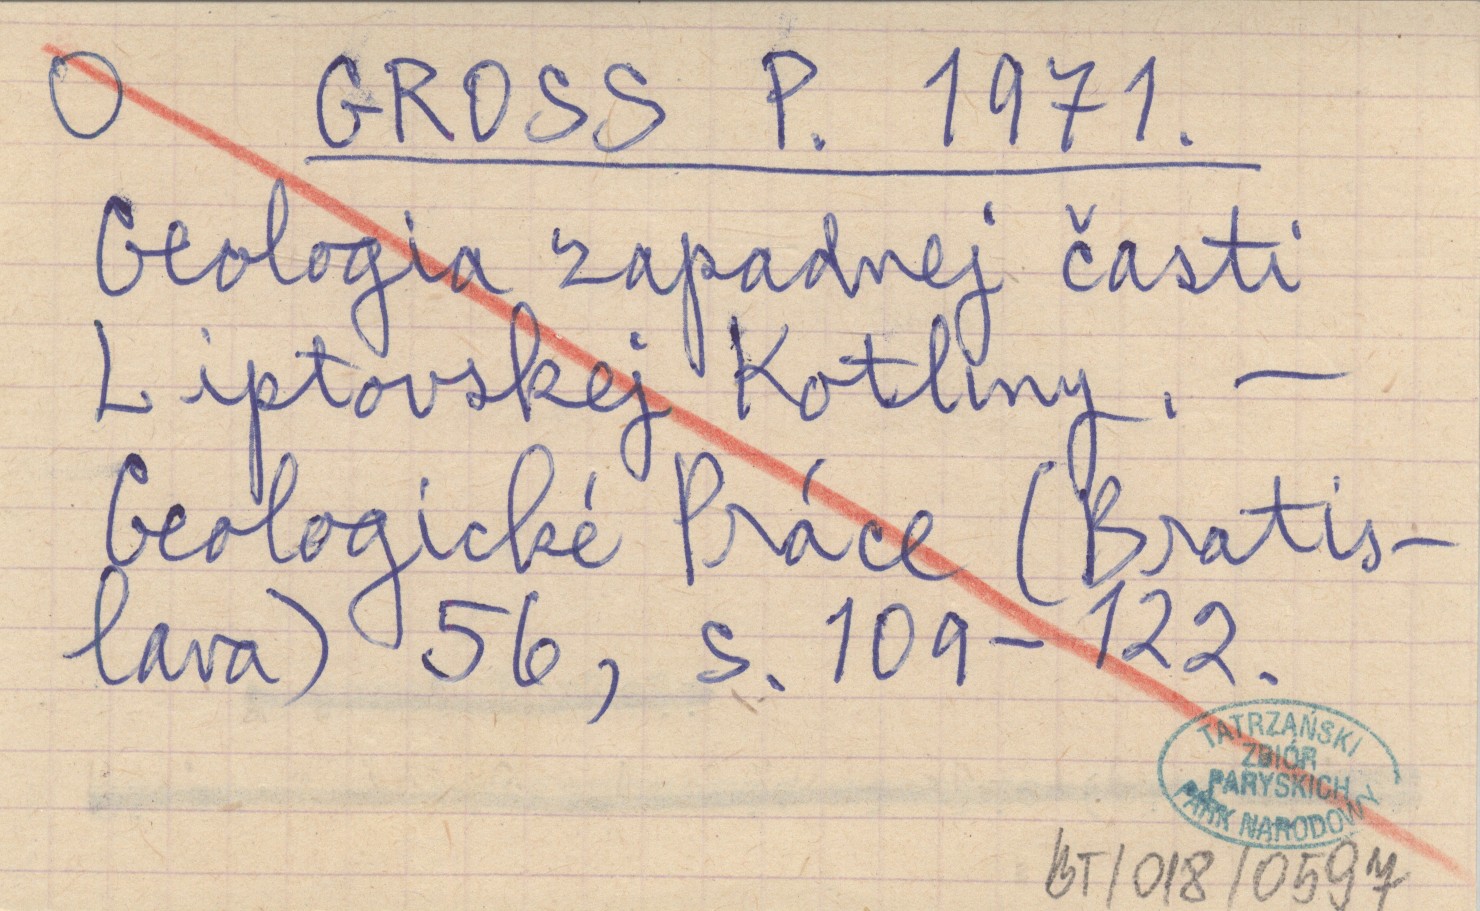 O GROSS P. 1971.
Geologia zapadnej časti
Liptovskej Kotliny. —
Geologické Práce (Bratis-
lava) 56, s. 109-122.
TATRZAŃSKI
ZBIÓR
PARYSKICH
PARK NARODOWY
BT/018/0597